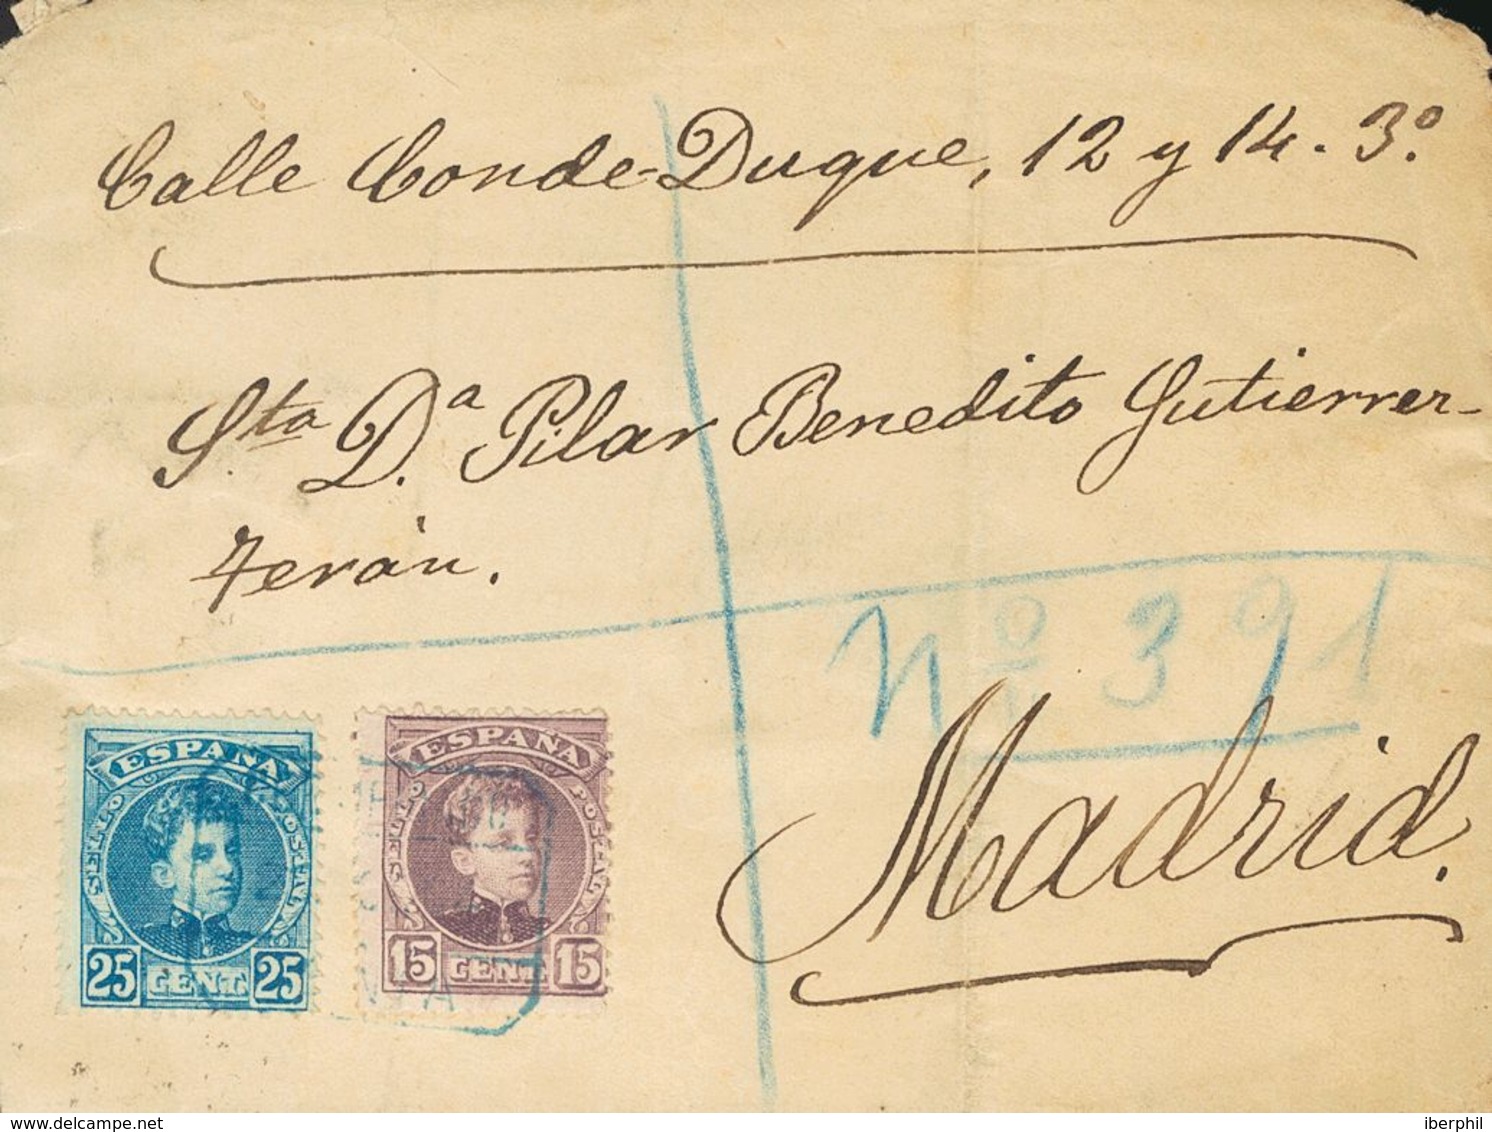 Calle Conde-Duque, 12 y 14. 3.º
Sta D.ª Pilar Benedito Gutierrez-
Terán.
Nº 391
Madrid.
ESPAÑA
SELLO POSTAL
25 CENT. 25
ESPAÑA
SELLO POSTAL
15 CENT. 15
delcampe.net
iberphil